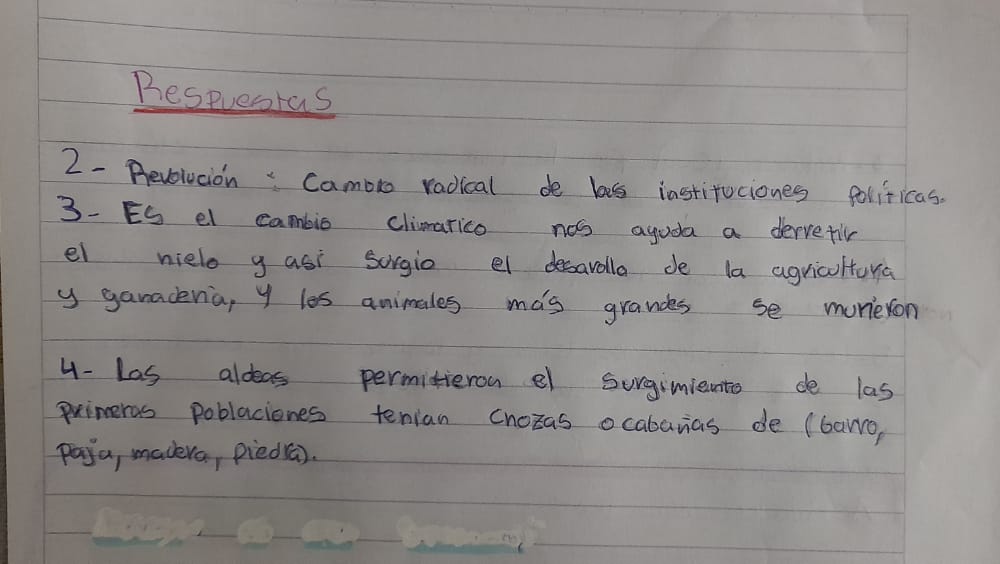 Respuestas
2- Revolución: Cambio radical de las instituciones políticas.
3- Es el cambio climatico nos ayuda a derretir
el hielo y asi surgio el desarolla de la agricultura
y ganaderia, y los animales más grandes se murieron
4- Las aldeas permitieron el surgimiento de las
primeras poblaciones tenian chozas o cabañas de (barro,
paja, madera, piedra).